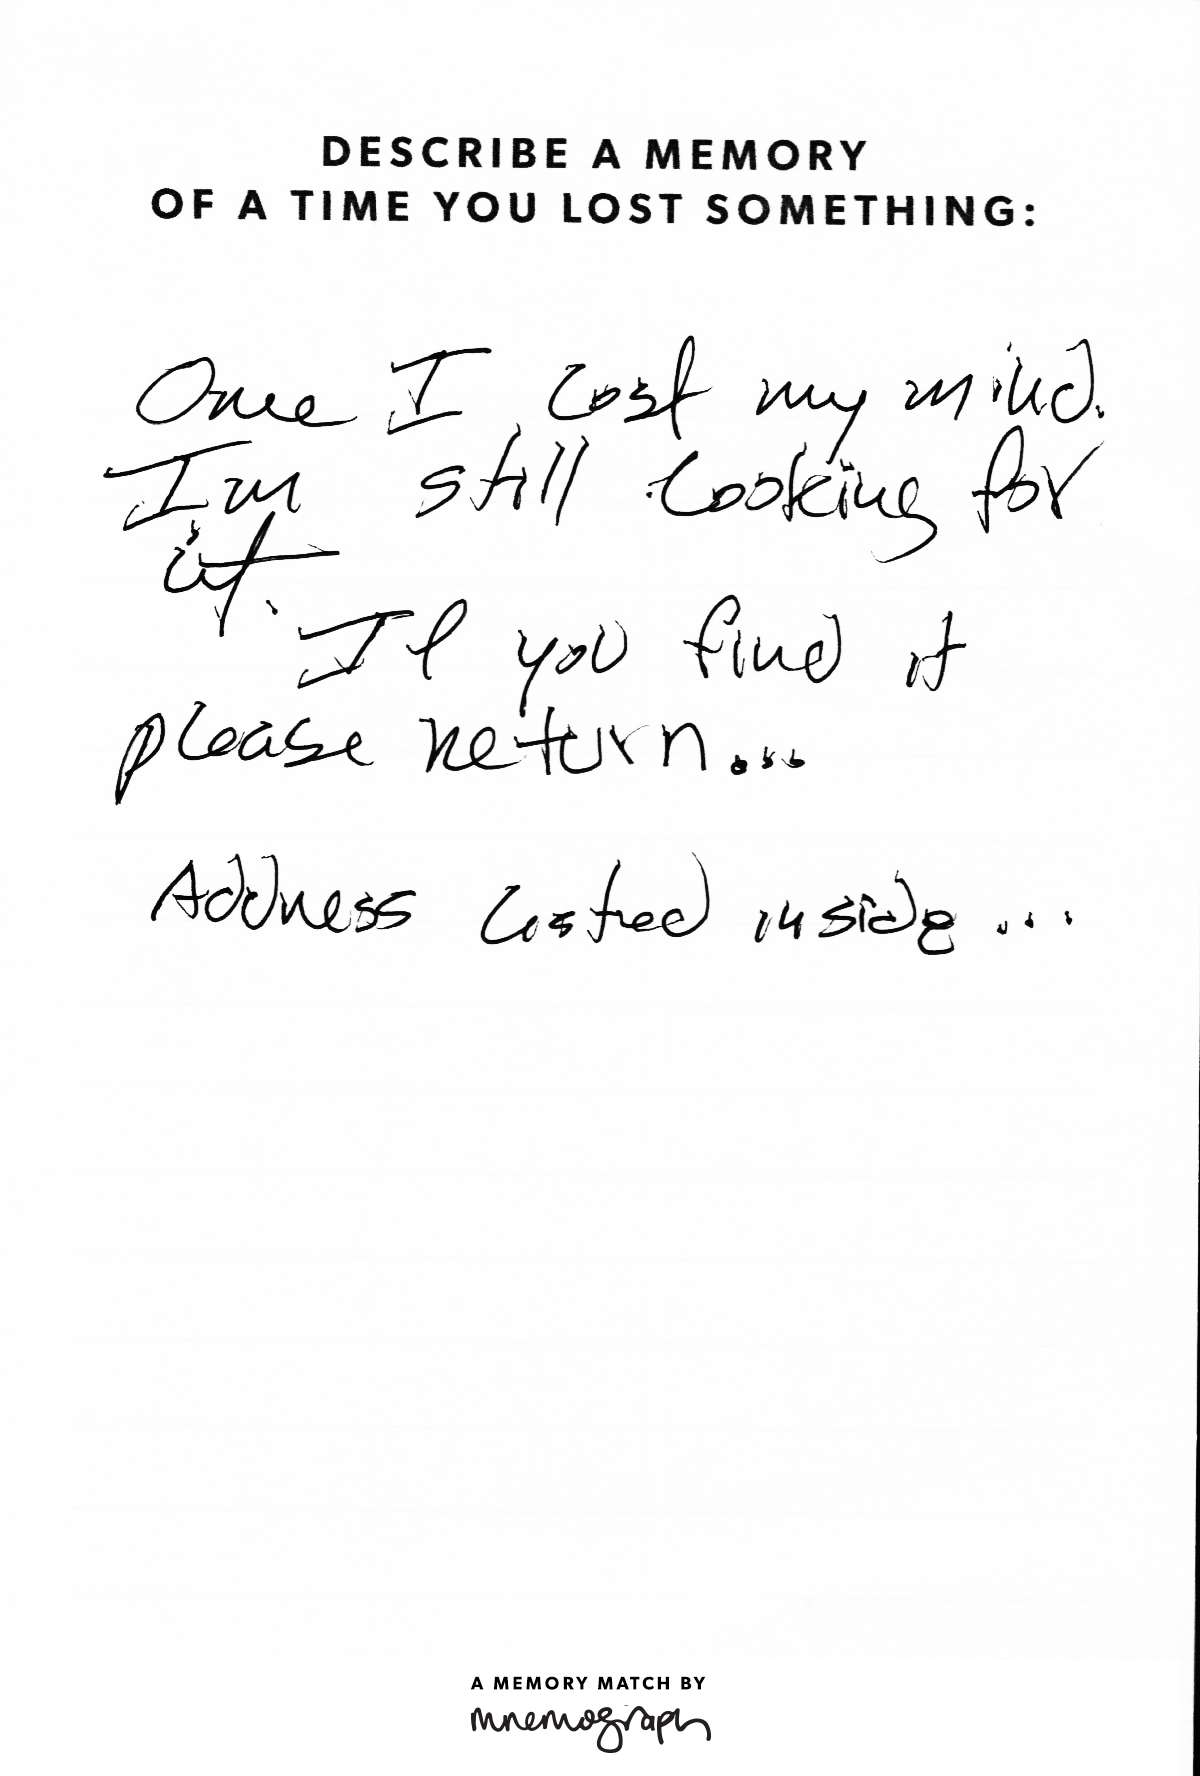 DESCRIBE A MEMORY
OF A TIME YOU LOST SOMETHING:
Once I lost my mind.
Im still looking for
it.
If you find it
please return...
Address listed inside...
A MEMORY MATCH BY
mnemograph